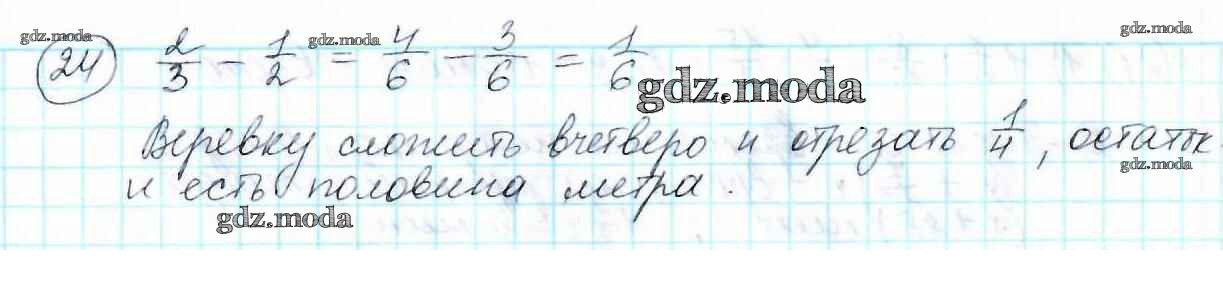 gdz.moda gdz.moda gdz.moda
24 2/3 - 1/2 = 4/6 - 3/6 = 1/6
gdz.moda
Веревку сложить вчетверо и отрезать 1/4, остаток
gdz.moda
и есть половина метра.
gdz.moda